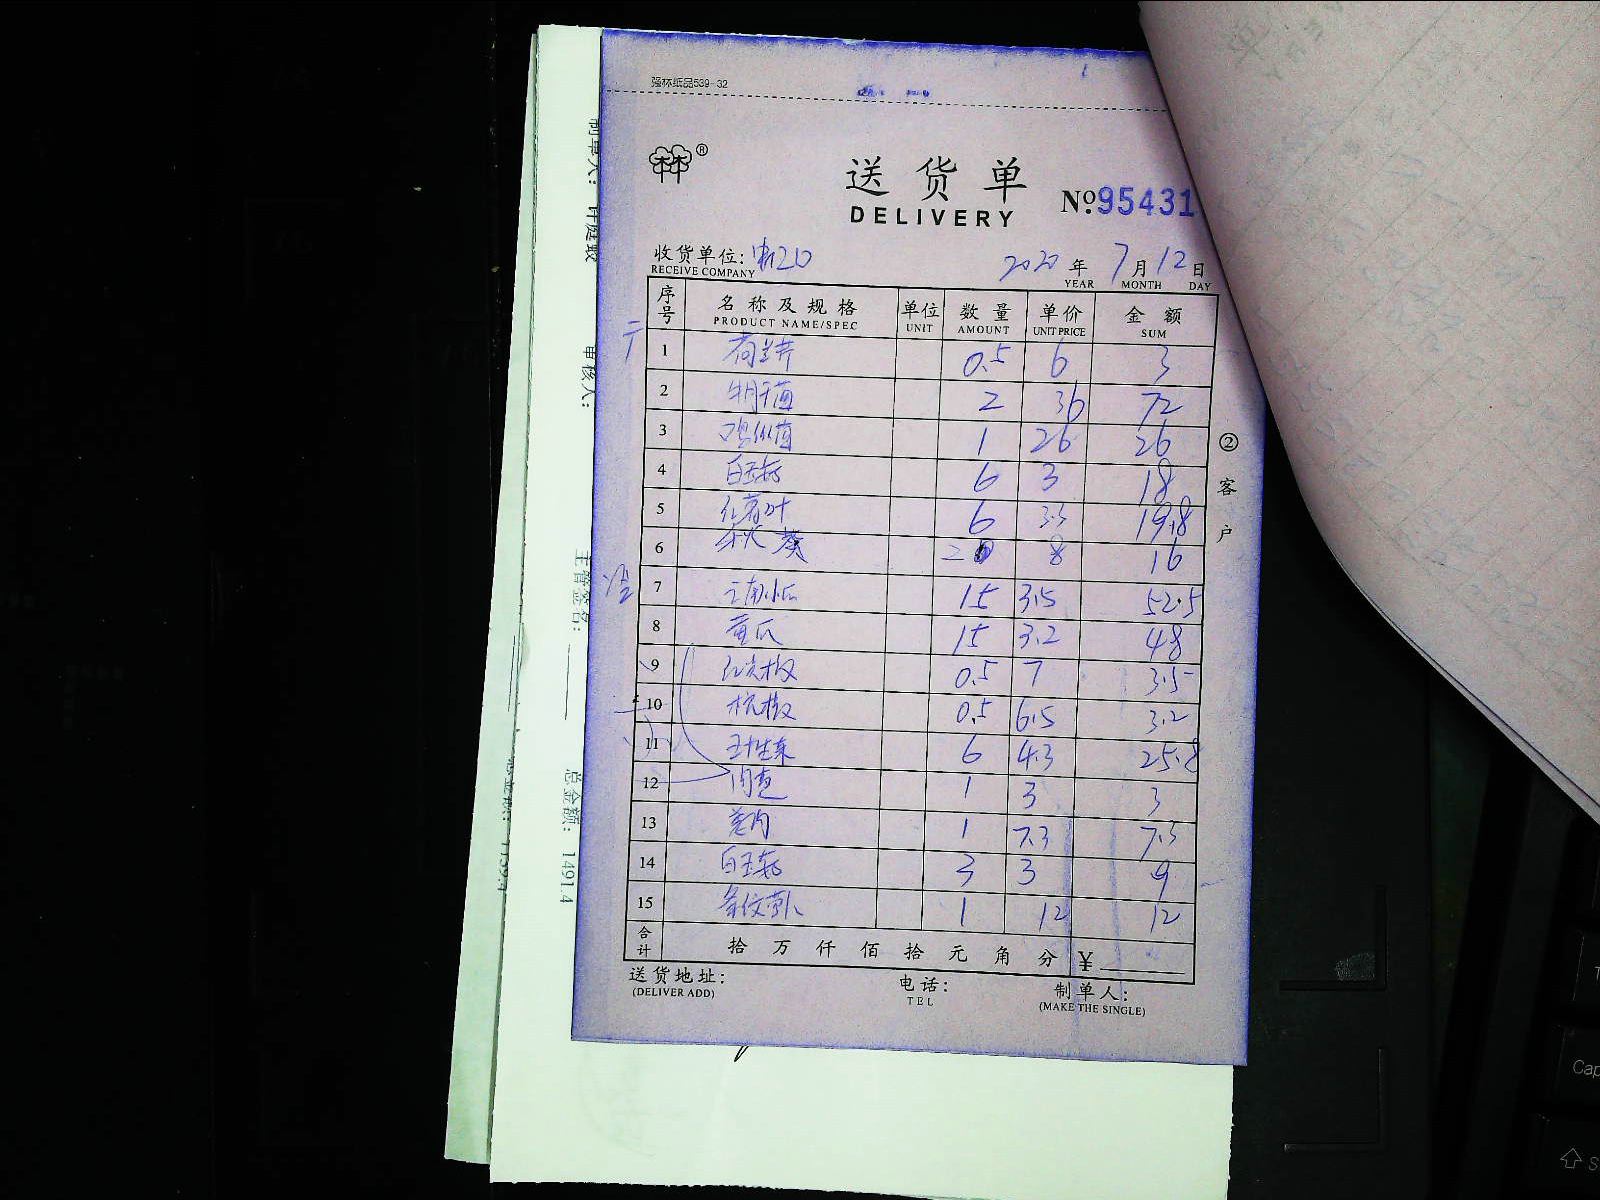 强林纸品539-32
送货单
DELIVERY
№95431
收货单位:
RECEIVE COMPANY
2020年7月12日
YEAR MONTH DAY
序号 名称及规格 单位 数量 单价 金额
PRODUCT NAME/SPEC UNIT AMOUNT UNIT PRICE SUM
1 荷兰芹 0.5 6 3
2 2 36 72
3 鸡枞菌 1 26 26
4 白玉菇 6 3 18
5 红苕叶 6 3.3 19.8
6 秋葵 2 8 16
7 云南小瓜 15 3.5 52.5
8 黄瓜 15 3.2 48
9 红尖椒 0.5 7 3.5
10 杭椒 0.5 6.5 3.2
11 6 4.3 25.8
12 1 3 3
13 姜肉 1 7.3 7.3
14 白玉菇 3 3 9
15 1 12 12
合计 拾 万 仟 佰 拾 元 角 分 ¥
送货地址: 电话: 制单人:
(DELIVER ADD) TEL (MAKE THE SINGLE)
②客户
制单人: 许庭
审核人:
主管签名:
总金额: 1491.4